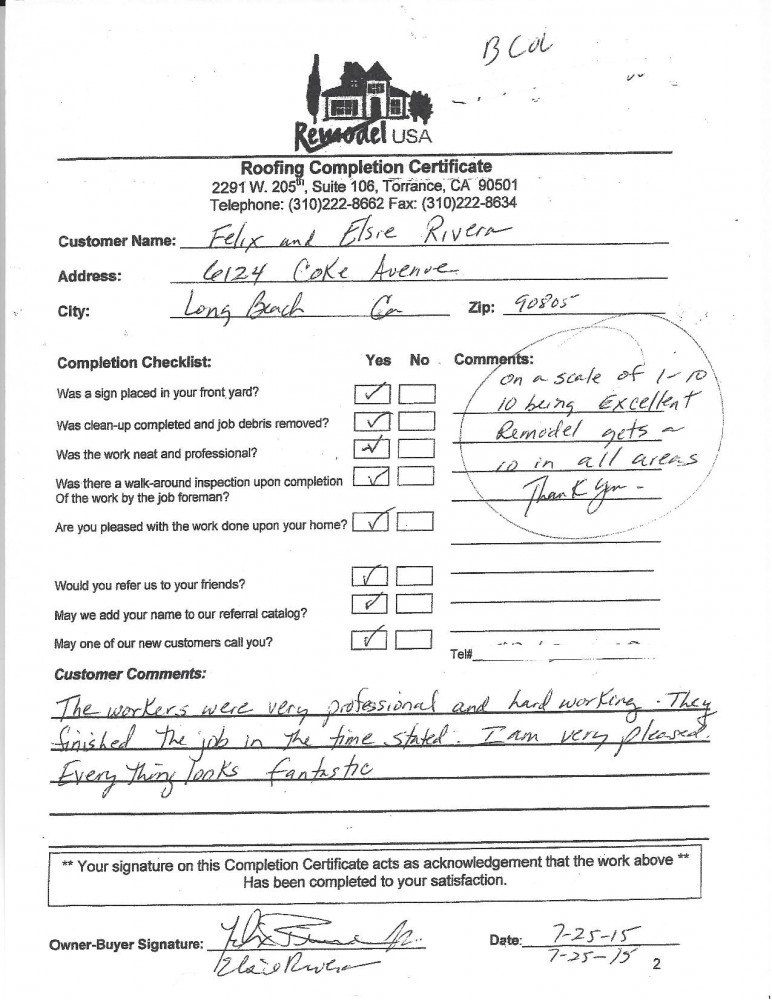 B Col
Remodel USA
Roofing Completion Certificate
2291 W. 205th, Suite 106, Torrance, CA 90501
Telephone: (310)222-8662 Fax: (310)222-8634
Customer Name: Felix and Elsie Rivera
Address: 6124 Coke Avenue
City: Long Beach Ca Zip: 90805
Completion Checklist: Yes No Comments:
Was a sign placed in your front yard?
Was clean-up completed and job debris removed?
Was the work neat and professional?
Was there a walk-around inspection upon completion
Of the work by the job foreman?
Are you pleased with the work done upon your home?
on a scale of 1-10
10 being Excellent
Remodel gets a
10 in all areas
Thank You -
Would you refer us to your friends?
May we add your name to our referral catalog?
May one of our new customers call you?
Tel#
Customer Comments:
The workers were very professional and hard working. They
finished the job in the time stated. I am very pleased.
Every thing looks fantastic
** Your signature on this Completion Certificate acts as acknowledgement that the work above **
Has been completed to your satisfaction.
Owner-Buyer Signature: Felix Rivera Jr. Date: 7-25-15
Elsie Rivera 7-25-15
2